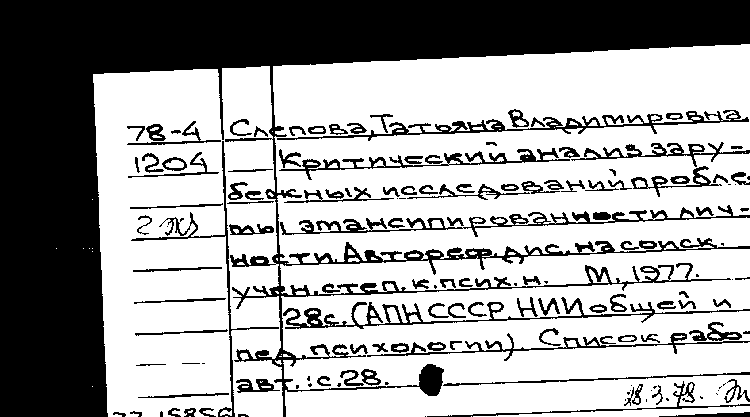 78-4 Слепова, Татьяна Владимировна.
1204 Критический анализ зару-
бежных исследований пробле
2 экз мы эмансипированности лич-
ности. Автореф. дис. на соиск.
учен. степ. к. псих. н. М., 1977.
28с. (АПН СССР. НИИ общей и
пед. психологии). Список рабо-
авт.: с. 28.
28.3.78.